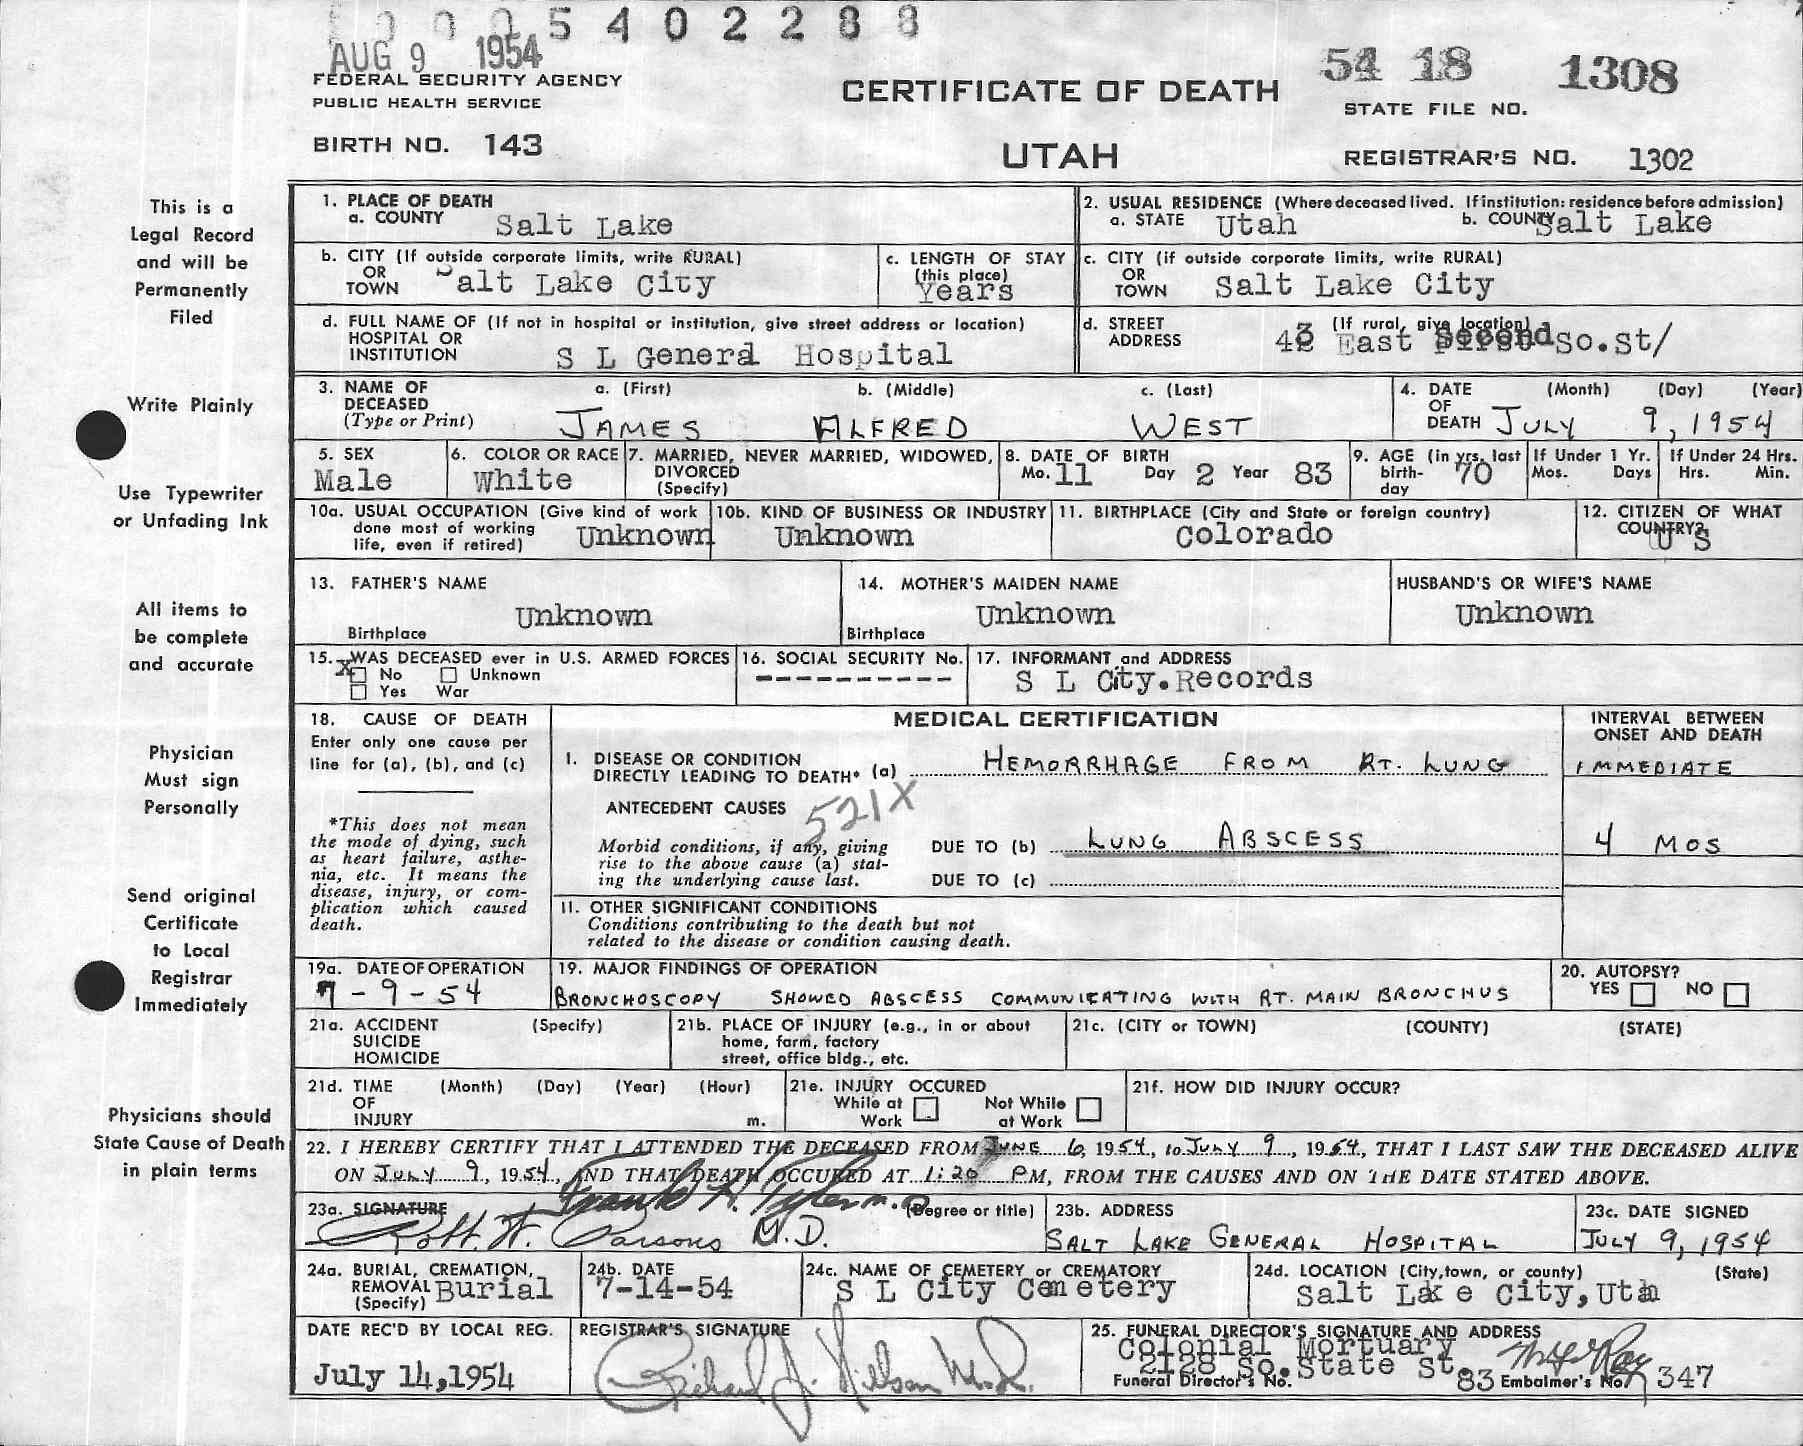 5 4 0 2 2 8 8
AUG 9 1954
FEDERAL SECURITY AGENCY
PUBLIC HEALTH SERVICE
BIRTH NO. 143
CERTIFICATE OF DEATH
UTAH
54 18 1308
STATE FILE NO.
REGISTRAR'S NO. 1302
This is a
Legal Record
and will be
Permanently
Filed
Write Plainly
Use Typewriter
or Unfading Ink
All items to
be complete
and accurate
Physician
Must sign
Personally
Send original
Certificate
to Local
Registrar
Immediately
Physicians should
State Cause of Death
in plain terms
1. PLACE OF DEATH
a. COUNTY Salt Lake
2. USUAL RESIDENCE (Where deceased lived. If institution: residence before admission)
a. STATE Utah b. COUNTY Salt Lake
b. CITY (If outside corporate limits, write RURAL)
OR
TOWN Salt Lake City
c. LENGTH OF STAY
(this place)
Years
c. CITY (if outside corporate limits, write RURAL)
OR
TOWN Salt Lake City
d. FULL NAME OF (If not in hospital or institution, give street address or location)
HOSPITAL OR
INSTITUTION S L General Hospital
d. STREET (If rural, give location)
ADDRESS East Second So.st/
3. NAME OF DECEASED (Type or Print)
a. (First) b. (Middle) c. (Last)
JAMES ALFRED WEST
4. DATE OF DEATH (Month) (Day) (Year)
JULY 9, 1954
5. SEX
Male
6. COLOR OR RACE
White
7. MARRIED, NEVER MARRIED, WIDOWED,
DIVORCED
(Specify)
8. DATE OF BIRTH
Mo. 11 Day 2 Year 83
9. AGE (in yrs. last
birth-
day 70
If Under 1 Yr.
Mos. Days
If Under 24 Hrs.
Hrs. Min.
10a. USUAL OCCUPATION (Give kind of work
done most of working
life, even if retired) Unknown
10b. KIND OF BUSINESS OR INDUSTRY
Unknown
11. BIRTHPLACE (City and State or foreign country)
Colorado
12. CITIZEN OF WHAT
COUNTRY?
U S
13. FATHER'S NAME
Unknown
Birthplace
14. MOTHER'S MAIDEN NAME
Unknown
Birthplace
HUSBAND'S OR WIFE'S NAME
Unknown
15. WAS DECEASED ever in U.S. ARMED FORCES
X No Unknown
Yes War
16. SOCIAL SECURITY No.
----------
17. INFORMANT and ADDRESS
S L City.Records
18. CAUSE OF DEATH
Enter only one cause per
line for (a), (b), and (c)
*This does not mean
the mode of dying, such
as heart failure, asthe-
nia, etc. It means the
disease, injury, or com-
plication which caused
death.
MEDICAL CERTIFICATION
INTERVAL BETWEEN
ONSET AND DEATH
I. DISEASE OR CONDITION
DIRECTLY LEADING TO DEATH* (a) HEMORRHAGE FROM RT. LUNG IMMEDIATE
ANTECEDENT CAUSES 521X
Morbid conditions, if any, giving
rise to the above cause (a) stat-
ing the underlying cause last.
DUE TO (b) LUNG ABSCESS 4 MOS
DUE TO (c)
II. OTHER SIGNIFICANT CONDITIONS
Conditions contributing to the death but not
related to the disease or condition causing death.
19a. DATE OF OPERATION
7-9-54
19. MAJOR FINDINGS OF OPERATION
BRONCHOSCOPY SHOWED ABSCESS COMMUNICATING WITH RT. MAIN BRONCHUS
20. AUTOPSY?
YES NO
21a. ACCIDENT (Specify)
SUICIDE
HOMICIDE
21b. PLACE OF INJURY (e.g., in or about
home, farm, factory
street, office bldg., etc.
21c. (CITY or TOWN) (COUNTY) (STATE)
21d. TIME (Month) (Day) (Year) (Hour)
OF
INJURY m.
21e. INJURY OCCURED
While at Not While
Work at Work
21f. HOW DID INJURY OCCUR?
22. I HEREBY CERTIFY THAT I ATTENDED THE DECEASED FROM JUNE 6, 1954, to JULY 9, 1954, THAT I LAST SAW THE DECEASED ALIVE
ON JULY 9, 1954, AND THAT DEATH OCCURED AT 1:20 PM, FROM THE CAUSES AND ON THE DATE STATED ABOVE.
Frank H. Tyler M.D.
23a. SIGNATURE (Degree or title)
Robt. W. Parsons M.D.
23b. ADDRESS
SALT LAKE GENERAL HOSPITAL
23c. DATE SIGNED
JULY 9, 1954
24a. BURIAL, CREMATION,
REMOVAL
(Specify) Burial
24b. DATE
7-14-54
24c. NAME OF CEMETERY or CREMATORY
S L City Cemetery
24d. LOCATION (City, town, or county) (State)
Salt Lake City, Utah
DATE REC'D BY LOCAL REG.
July 14,1954
REGISTRAR'S SIGNATURE
25. FUNERAL DIRECTOR'S SIGNATURE AND ADDRESS
Colonial Mortuary
2128 So. State St.
Funeral Director's No. 83 Embalmer's No. 347